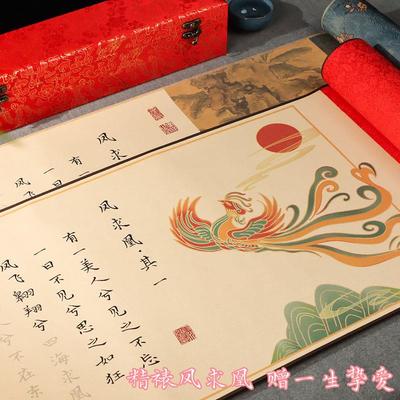 凤求
有一
一日
凤飞
凤求凰·其一
有一美人兮见之不忘
一日不见兮思之如狂
凤飞翱翔兮
四海求凰
不在东
精裱凤求凰 赠一生挚爱